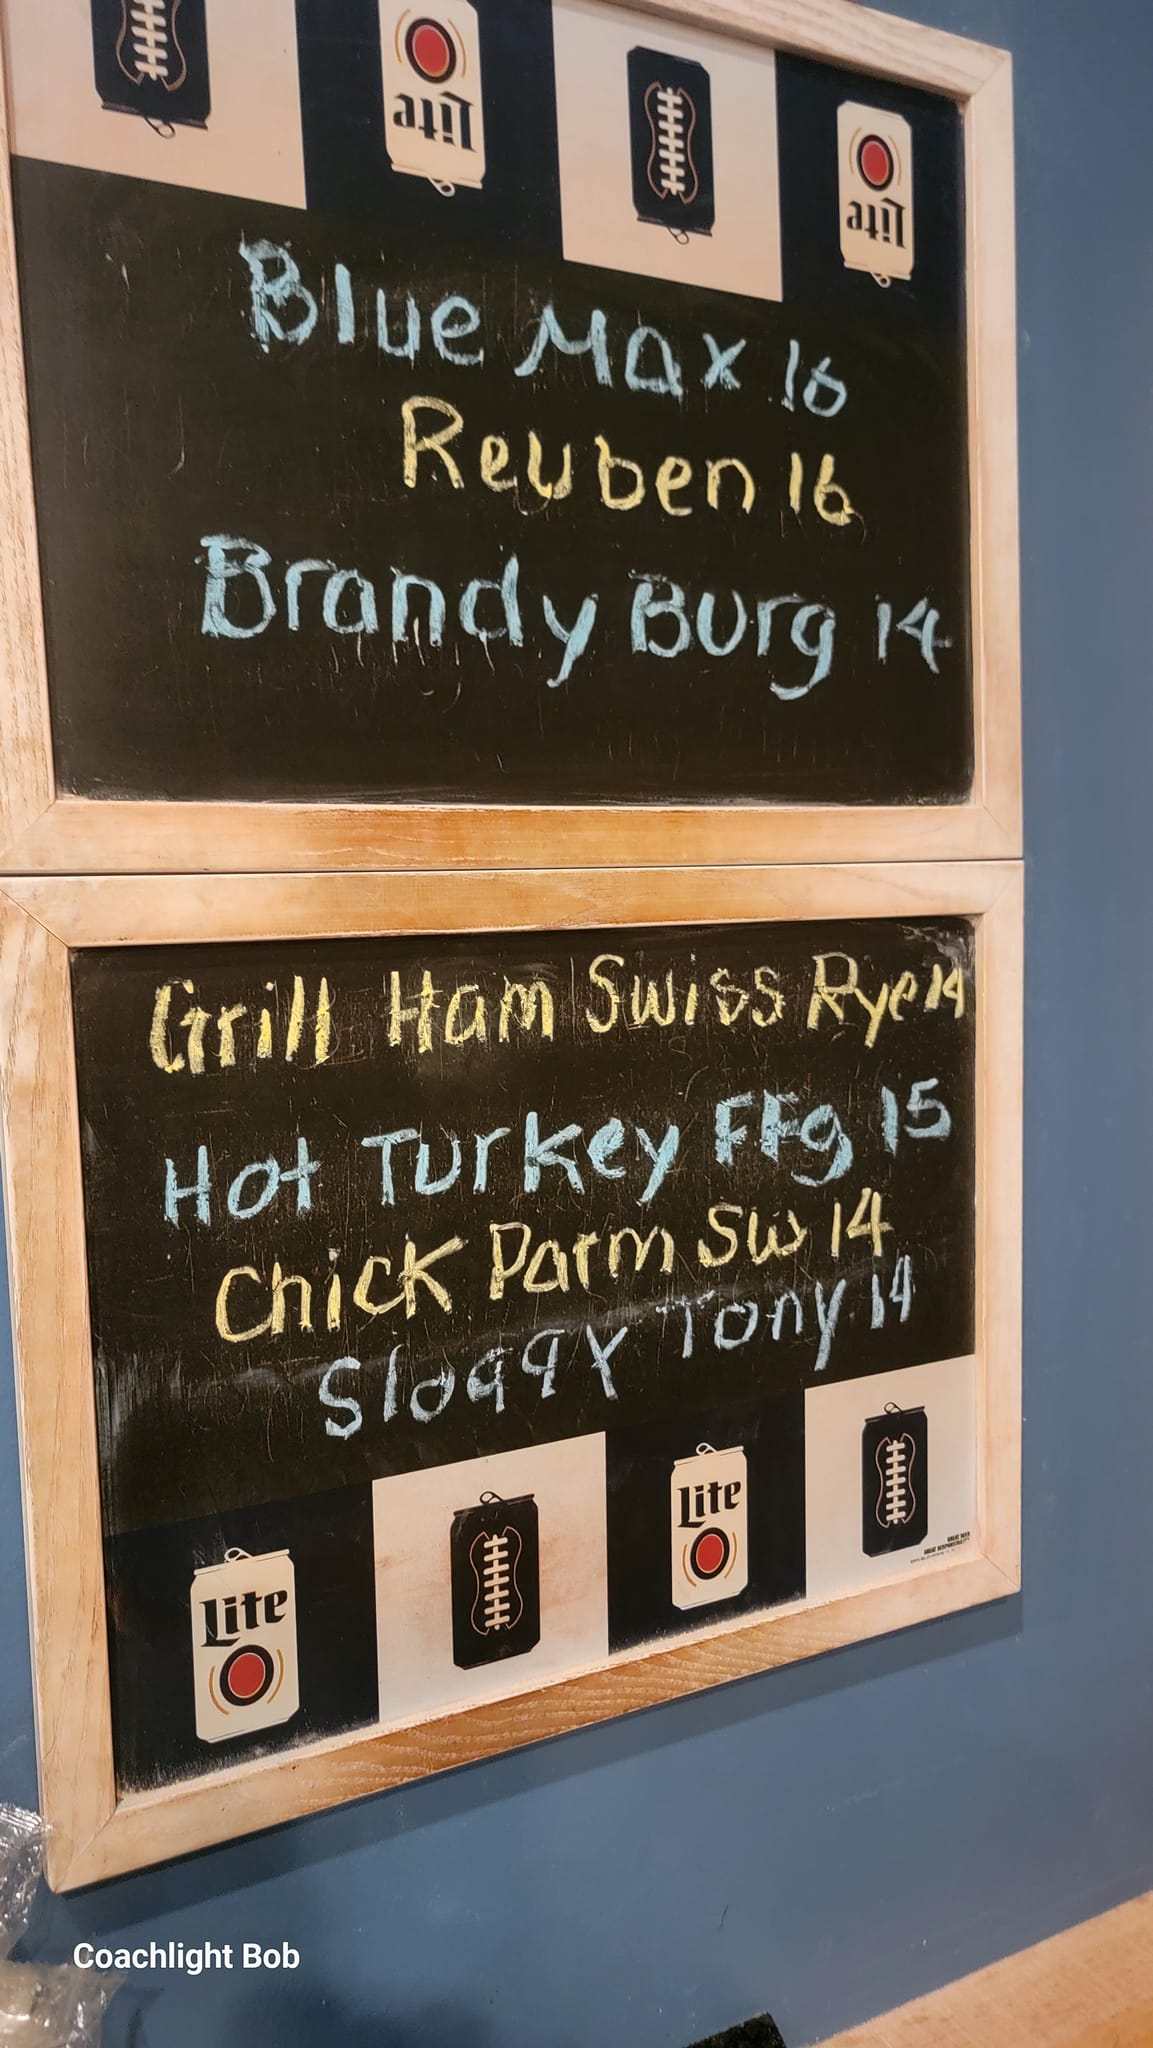 Lite
Lite
Blue Max 16
Reuben 16
Brandy Burg 14
Grill Ham Swiss Rye 14
Hot Turkey FFg 15
Chick Parm Sw 14
Sloqqy Tony 14
Lite
Lite
GREAT BEER
GREAT RESPONSIBILITY
Coachlight Bob